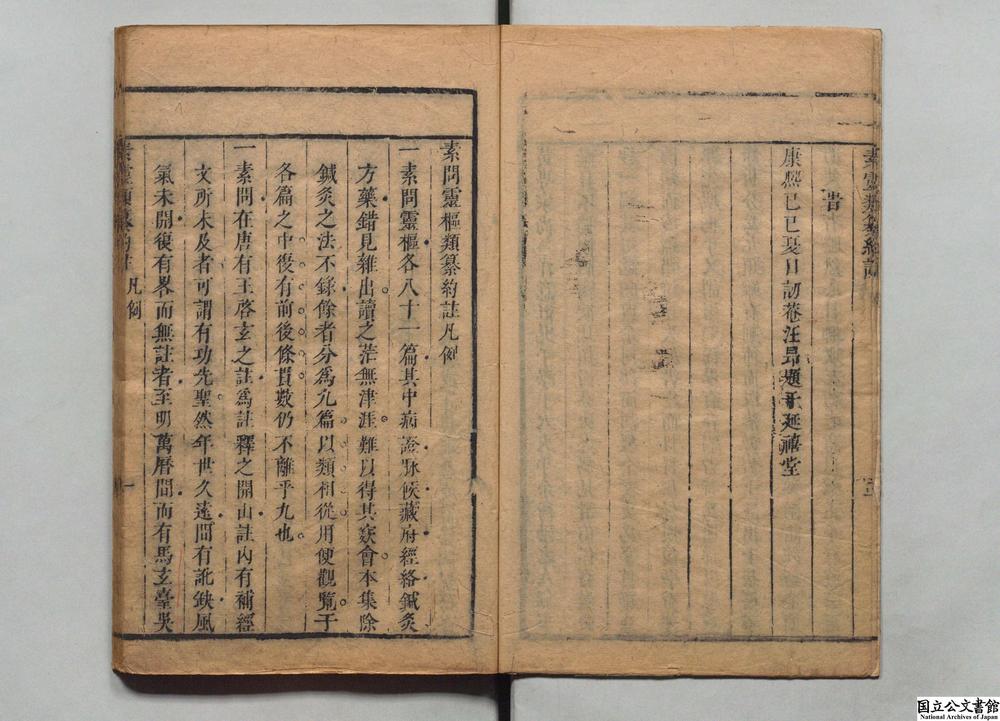 素靈類纂約註
昔
康熙己巳夏日訒菴汪昂題于延禧堂
素問靈樞類纂約註凡例
一素問靈樞各八十一篇其中病證脉候藏府經絡鍼灸
方藥錯見雜出讀之茫無津涯難以得其窾會本集除
鍼灸之法不錄餘者分為九篇以類相從用便觀覽于
各篇之中復有前後條貫數仍不離乎九也
一素問在唐有王啓玄之註為註釋之開山註內有補經
文所未及者可謂有功先聖然年世久遠間有訛缺風
氣未開復有畧而無註者至明萬曆間而有馬玄臺吳
素靈類纂約註
凡例
一
国立公文書館
National Archives of Japan